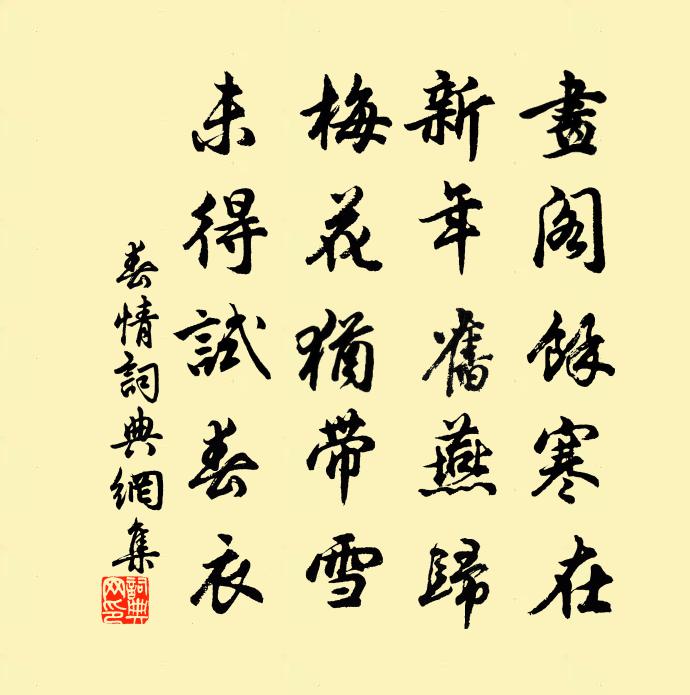 畫閣餘寒在
新年舊燕歸
梅花猶帶雪
未得試春衣
春情詞典網集
詞典
网印